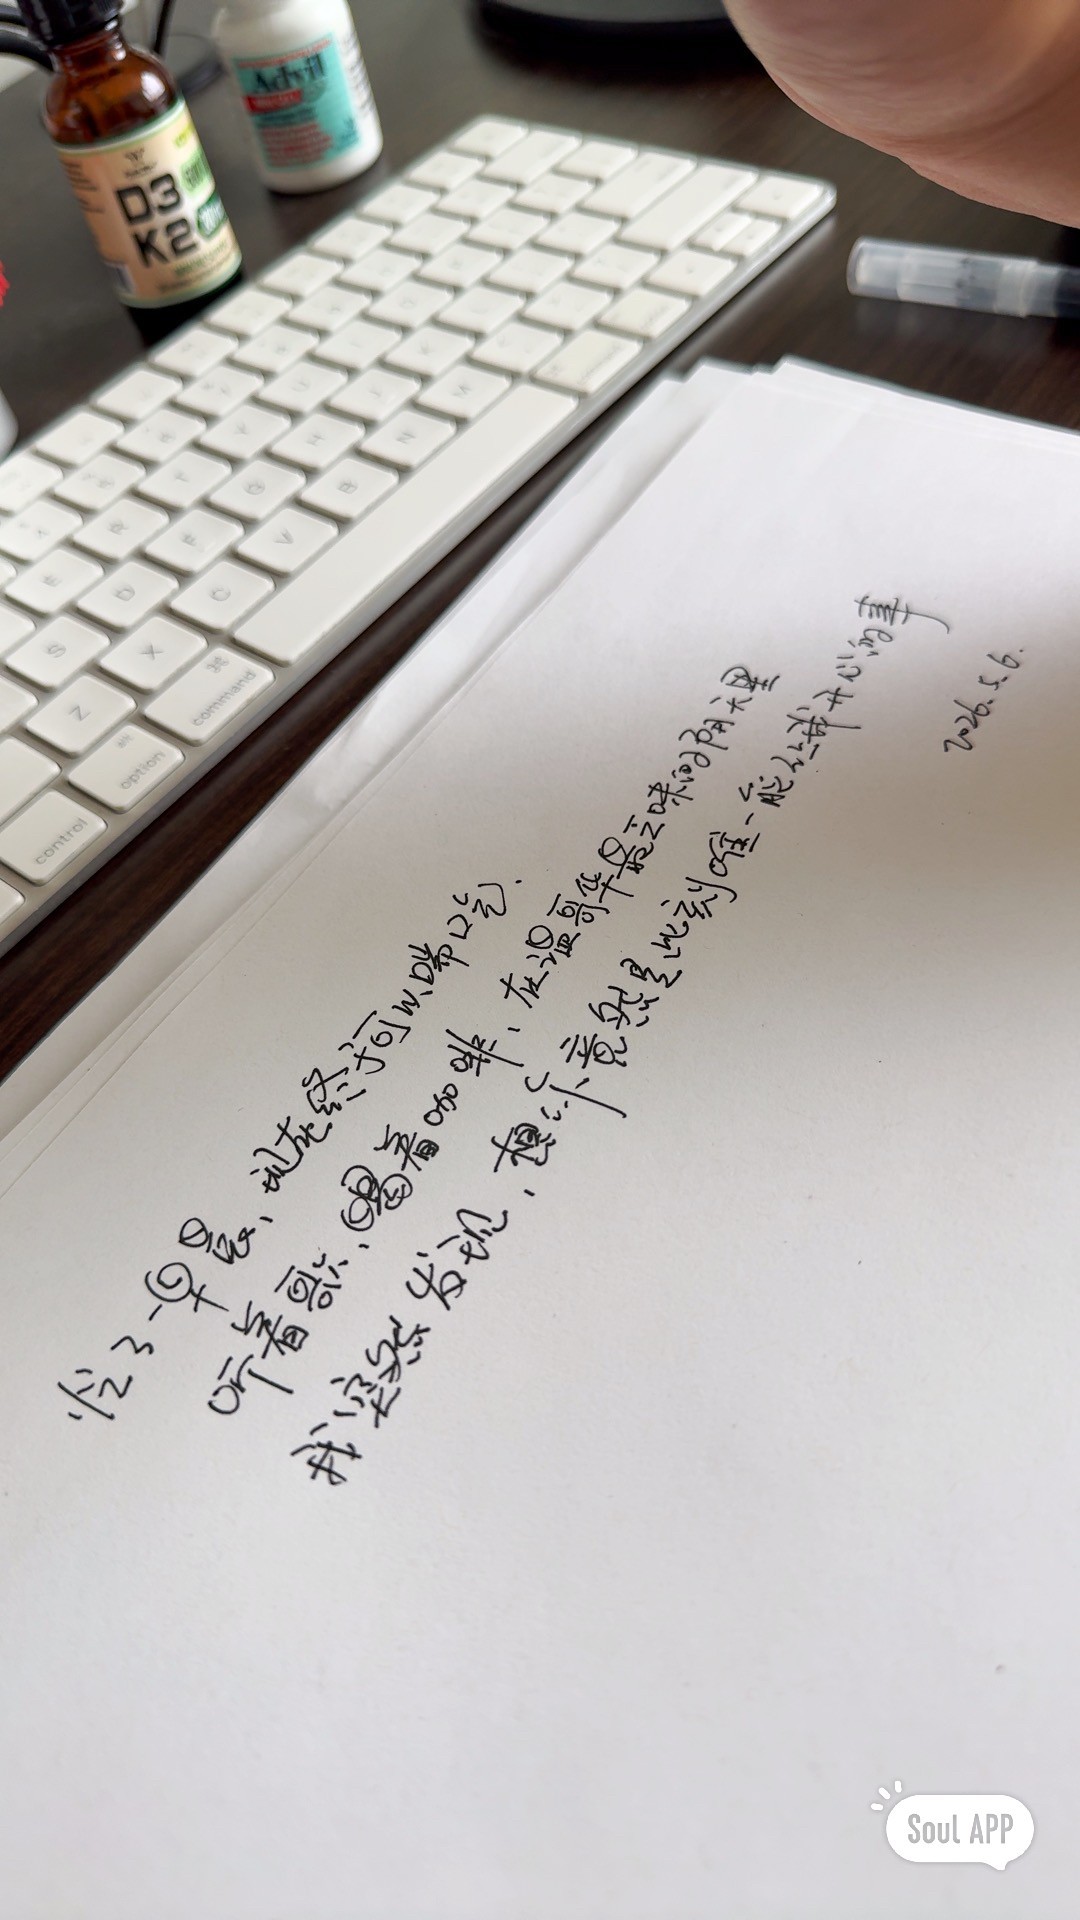 忙了一早晨、现在终于可以喘口气.
听着歌、喝着咖啡、在温哥华最乏味的阴天里
我突然发现、想你竟然是此刻唯一能让我开心的事
2026.5.6.
Advil
D3
K2
control
option
alt
command
⌘
Z
X
C
V
B
N
M
S
D
F
G
H
E
R
T
Y
Soul APP